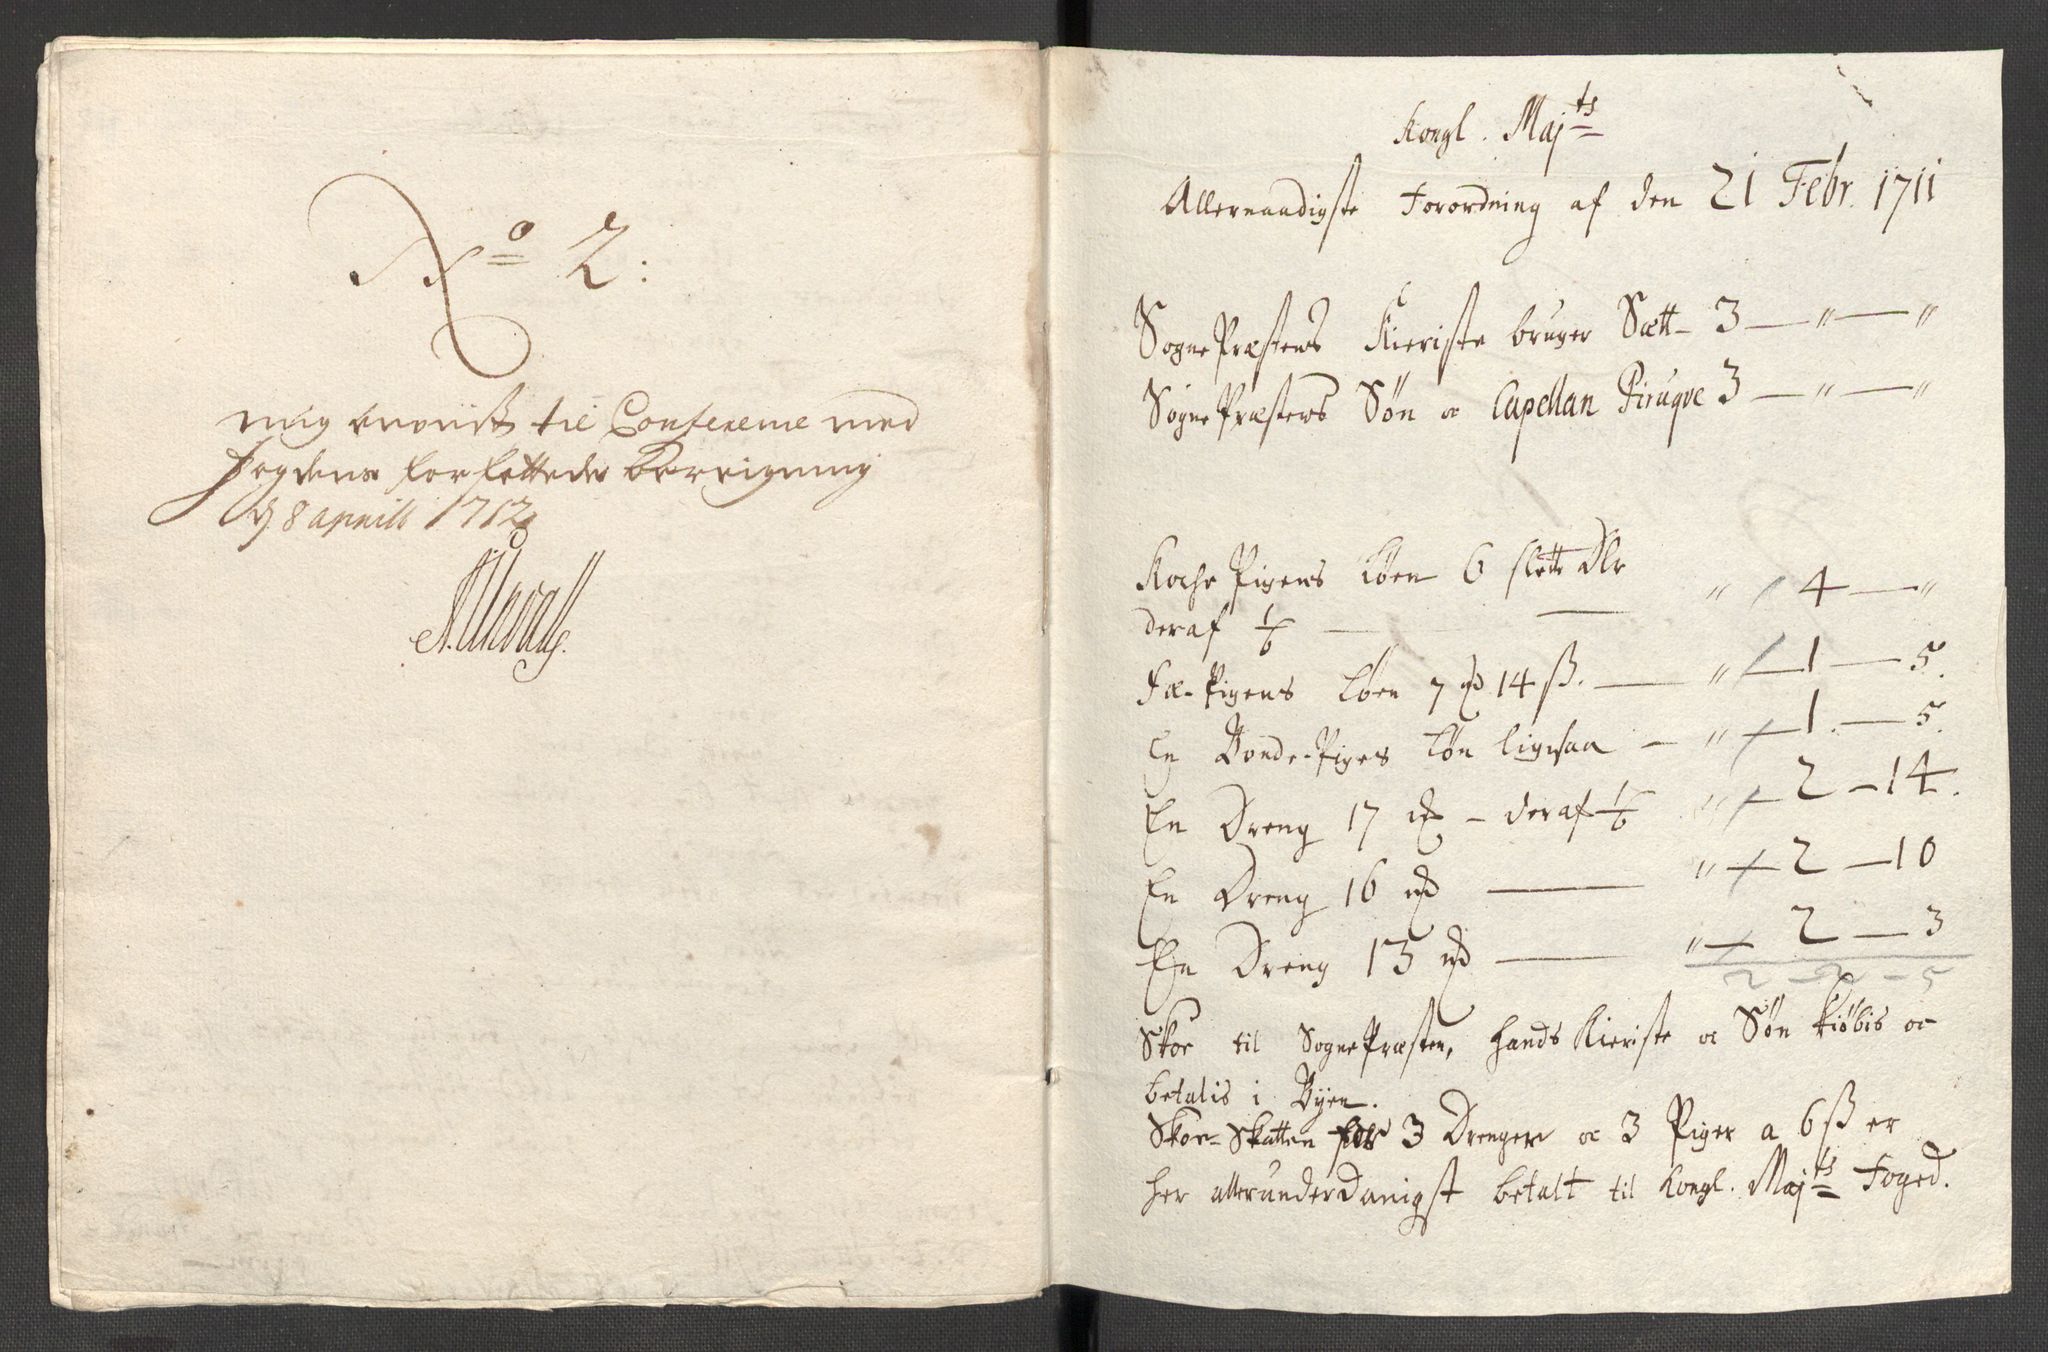 No 2:
mig anvist til Conference med
fogdens forfattede beregning
d 8 aprill 1712
Kongl. Majts
Allernaadigste Forordning af den 21 Febr. 1711
SognePræstens Kieriste bruger Sætt- 3 — " — "
SognePræstens Søn oc Capellan Piruqve 3 — " — "
Koche Pigens Løen 6 slette Dlr
deraf 1/6 — " / 4 — "
Fæ-Pigens Løen 7 mk 14 ß. — " / 1 — 5.
En Bonde-Piges Løn ligesaa — " / 1. — 5.
En Dreng 17 mk - deraf 1/6 " / 2 — 14.
En Dreng 16 mk — " / 2 — 10
En Dreng 13 mk — " / 2 — 3
2 - 2 - 5
Skoe til SognePræsten, hands Kieriste oc Søn kiøbis oc
betalis i Byen.
Skoe-Skatten for 3 Drenger oc 3 Piger a 6 ß er
her allerunderdanigst betalt til Kongl. Majts Foged.